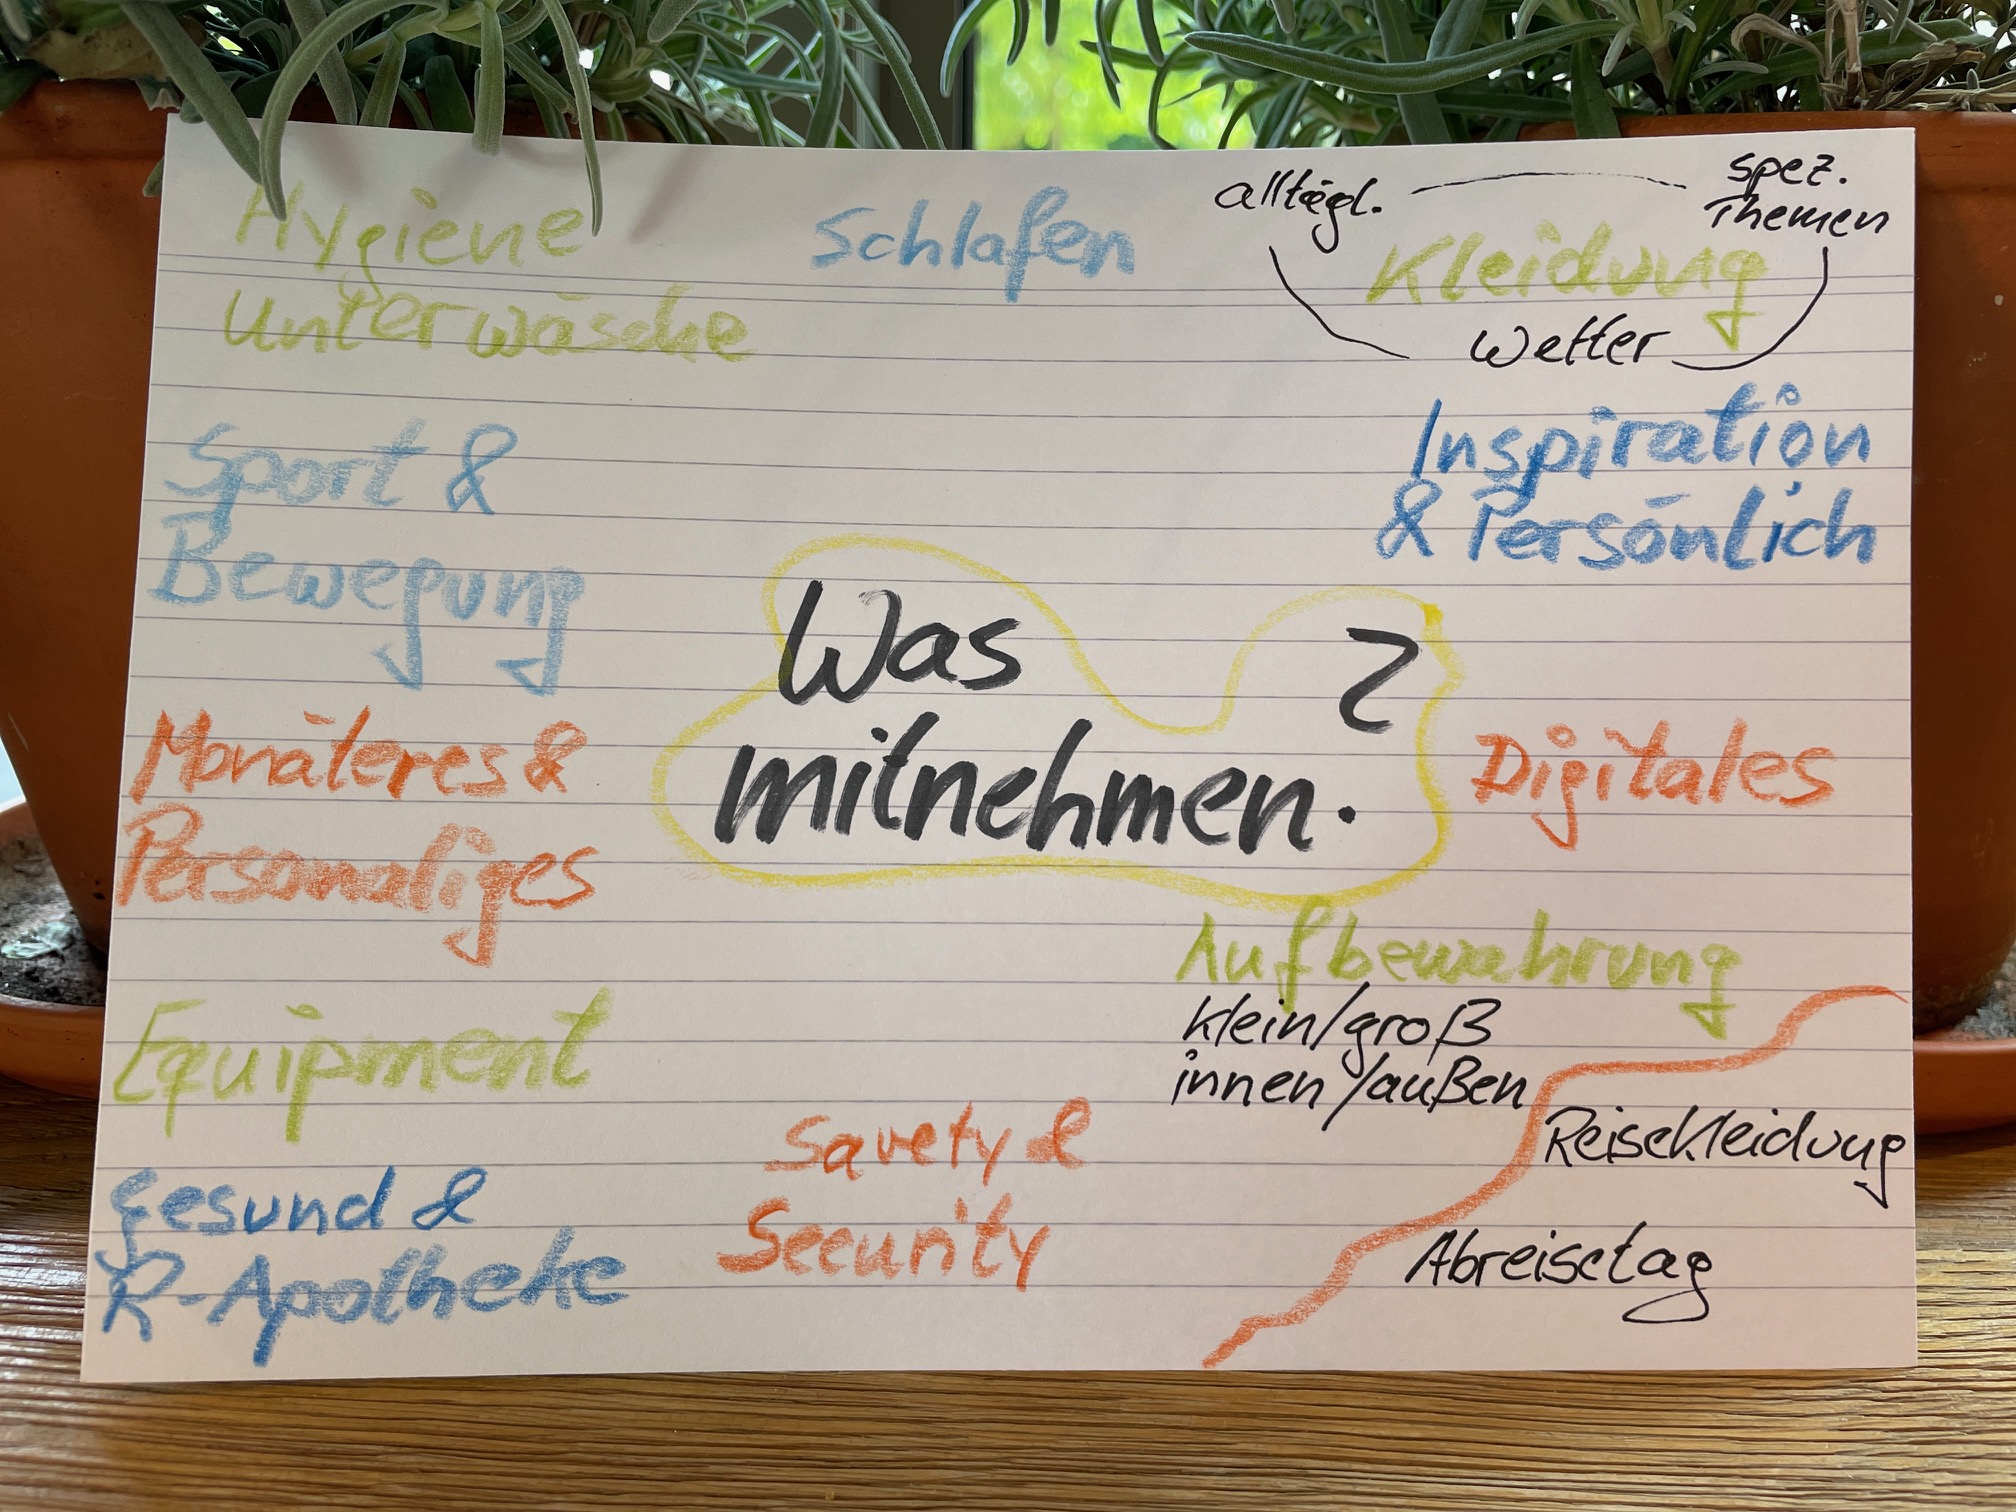 Hygiene
Unterwäsche
Schlafen
alltägl.
spez.
Themen
Kleidung
Wetter
Sport &
Bewegung
Inspiration
& Persönlich
Was
mitnehmen.?
Monäteres &
Personaliges
Digitales
Aufbewahrung
klein/groß
innen/außen
Equipment
Savety &
Security
Gesund &
R-Apotheke
Reisekleidung
Abreisetag